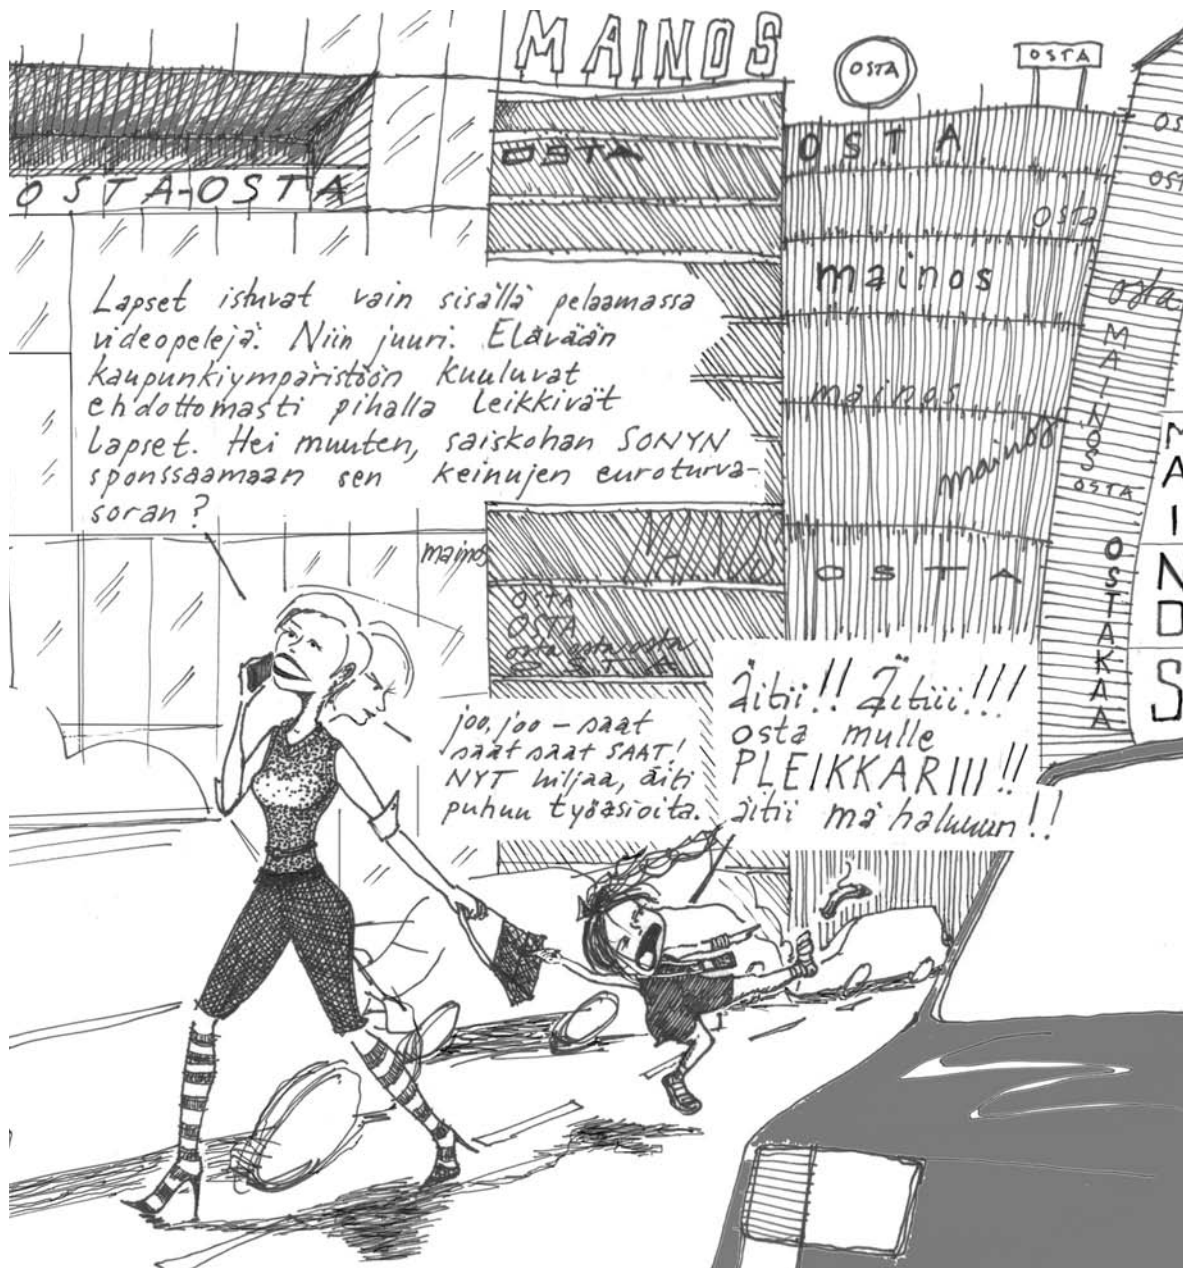 MAINOS
OSTA
OSTA
OSTA-OSTA
OSTA
OSTA
OSTA
mainos
osta
mainos
mainos
OSTA
MAINOS
OSTA
OSTAKAA
MAINOS
Lapset istuvat vain sisällä pelaamassa
videopelejä. Niin juuri. Elävään
kaupunkiympäristöön kuuluvat
ehdottomasti pihalla leikkivät
lapset. Hei muuten, saiskohan SONYN
sponssaamaan sen keinujen euroturva-
soran?
mainos
OSTA
OSTA
osta osta osta
OSTA
joo, joo – saat
saat saat SAAT!
NYT hiljaa, äiti
puhuu työasioita.
Äitii!! Äitiii!!!
osta mulle
PLEIKKARIII!!
äitii mä haluuun!!